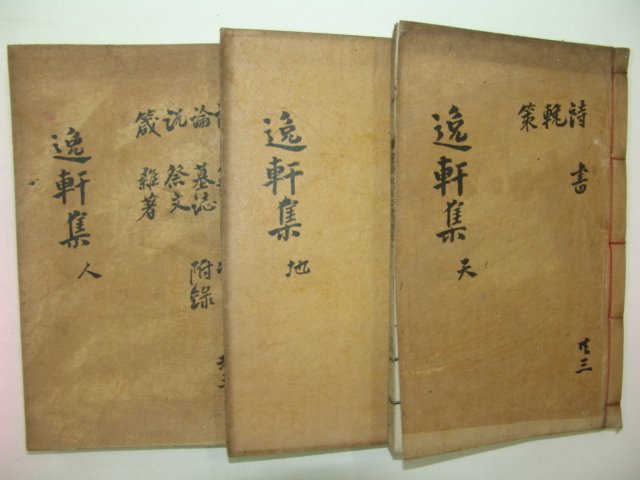 詩 書
輓
策
逸軒集 天
共三
逸軒集 地
論 墓誌 附錄
說 祭文
箴 雜著
逸軒集 人